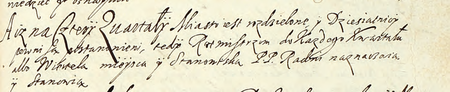 A iż na Cztery Quartały Miasto iest rozdzielone y Dziesiatnicy
postanowieni, tedy Rotmistrzom do Każdego Kwartału
albo miejsca y Stanowiska P.P. Radni naznaczaią
y Stanowią